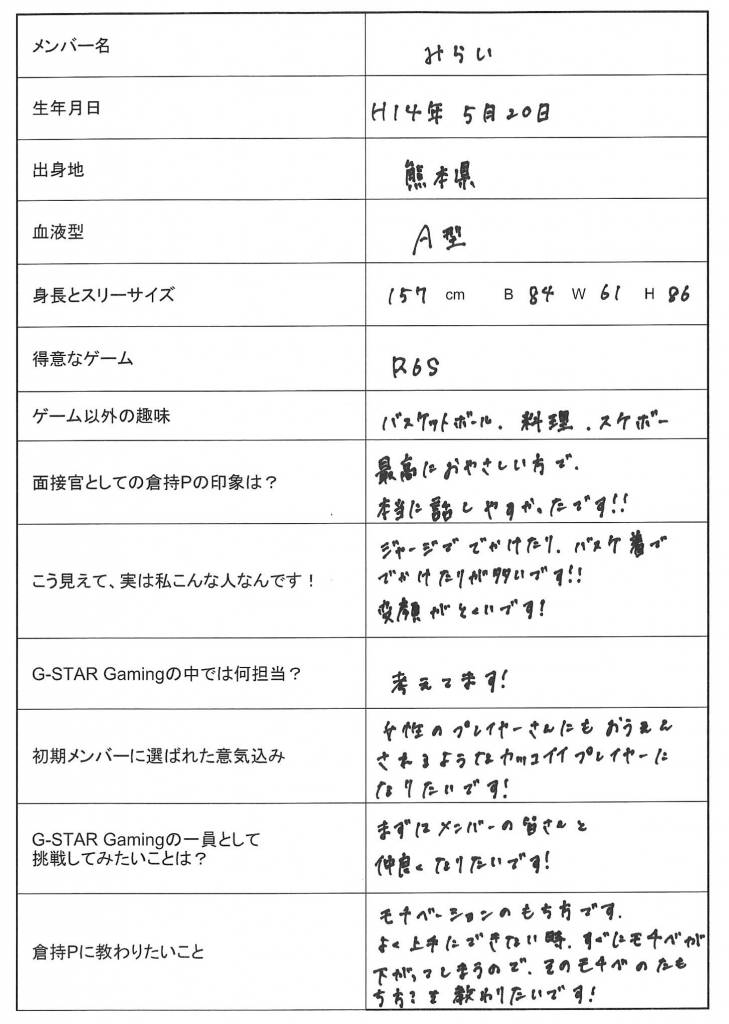 メンバー名
みらい
生年月日
H14年 5月20日
出身地
熊本県
血液型
A型
身長とスリーサイズ
157 cm B 84 W 61 H 86
得意なゲーム
R6S
ゲーム以外の趣味
バスケットボール、料理、スケボー
面接官としての倉持Pの印象は？
最高におやさしい方で、
本当に話しやすかったです!!
こう見えて、実は私こんな人なんです！
ジャージででかけたり、バスケ着で
でかけたりが多いです!!
変顔がとくいです!
G-STAR Gamingの中では何担当？
考えてます!
初期メンバーに選ばれた意気込み
女性のプレイヤーさんにもおうえん
されるようなカッコイイプレイヤーに
なりたいです!
G-STAR Gamingの一員として
挑戦してみたいことは？
まずはメンバーの皆さんと
仲良くなりたいです!
倉持Pに教わりたいこと
モチベーションのもち方です。
よく上手にできない時、すぐにモチベが
下がってしまうので、そのモチベのたも
ち方を教わりたいです!